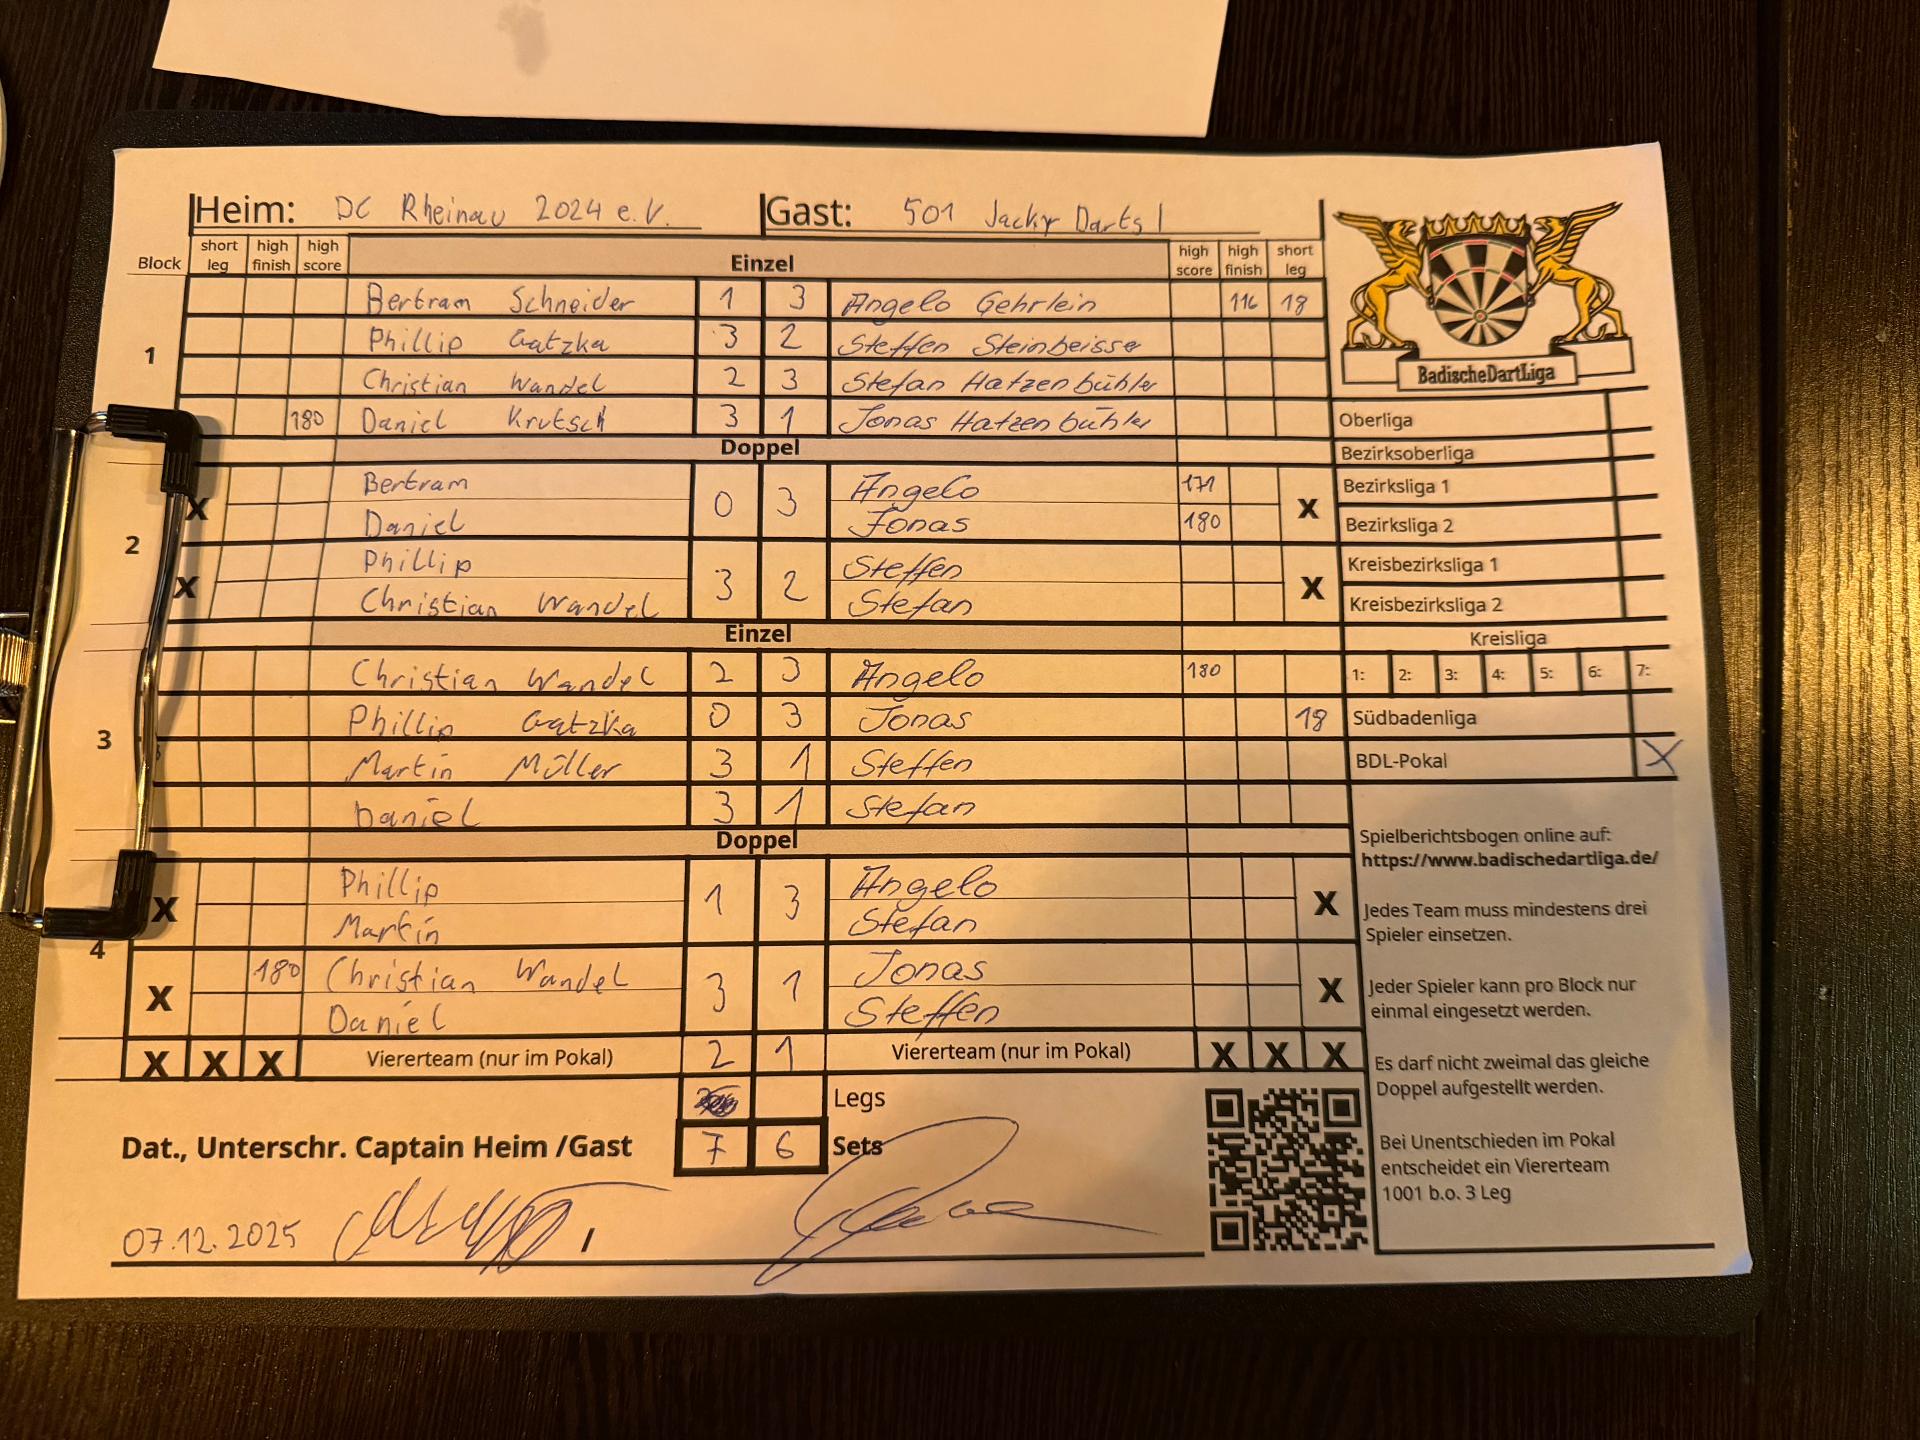 Heim: DC Rheinau 2024 e.V. Gast: 501 Jacky Darts I
Block short leg high finish high score Einzel high score high finish short leg
1
Bertram Schneider 1 3 Angelo Gehrlein 116 18
Phillip Gatzka 3 2 Steffen Steinbeisse
Christian Wandel 2 3 Stefan Hatzenbühler
180 Daniel Krutsch 3 1 Jonas Hatzenbühler
Doppel
2
X Bertram 0 3 Angelo 171 X
Daniel Jonas 180
X Phillip 3 2 Steffen X
Christian Wandel Stefan
Einzel
3
Christian Wandel 2 3 Angelo 180
Phillip Gatzka 0 3 Jonas 18
Martin Müller 3 1 Steffen
Daniel 3 1 Stefan
Doppel
4
X Phillip 1 3 Angelo X
Martin Stefan
X 180 Christian Wandel 3 1 Jonas X
Daniel Steffen
X X X Viererteam (nur im Pokal) 2 1 Viererteam (nur im Pokal) X X X
Legs
Dat., Unterschr. Captain Heim /Gast 7 6 Sets
07.12.2025 /
BadischeDartLiga
Oberliga
Bezirksoberliga
Bezirksliga 1
Bezirksliga 2
Kreisbezirksliga 1
Kreisbezirksliga 2
Kreisliga
1: 2: 3: 4: 5: 6: 7:
Südbadenliga
BDL-Pokal X
Spielberichtsbogen online auf:
https://www.badischedartliga.de/
Jedes Team muss mindestens drei
Spieler einsetzen.
Jeder Spieler kann pro Block nur
einmal eingesetzt werden.
Es darf nicht zweimal das gleiche
Doppel aufgestellt werden.
Bei Unentschieden im Pokal
entscheidet ein Viererteam
1001 b.o. 3 Leg